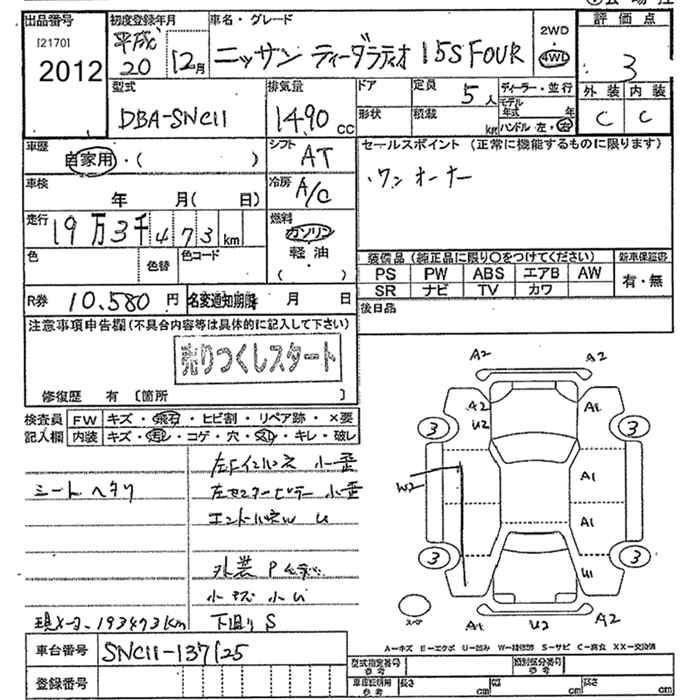 出品番号 初度登録年月 車名・グレード 2WD 評価点
[2170]
2012 平成20 12月 ニッサン ティーダラティオ 15S FOUR 4WD 3
型式 排気量 ドア 定員 5人 ディーラー・並行 外装 内装
DBA-SNC11 1490 CC 形状 積載 kg モデル年式 年 ハンドル 左・右 C C
車歴 自家用・( ) シフト AT セールスポイント (正常に機能するものに限ります)
車検 年 月( 日) 冷房 A/C ・ワンオーナー
走行 19万3千473km 燃料 ガソリン
色 色替 色コード 軽油 ( ・ ) 装備品 (純正品に限り○をつけてください) 新車保証書
PS PW ABS エアB AW 有・無
SR ナビ TV カワ
R券 10.580円 名変通知期限 月 日 後日品
注意事項申告欄(不具合内容等は具体的に記入して下さい)
売りつくしスタート
修復歴 有 [箇所 ]
検査員 FW キズ・飛石・ヒビ割・リペア跡・×要
記入欄 内装 キズ・汚レ・コゲ・穴・スレ・キレ・破レ
左Fインパネ 小歪
シートヘタリ 左センターピラー 小歪
エンドパネW U
外装 P
小キズ 小U
現メーター 193473km 下廻り S
A2 A2
A2 A1
U2
3 3
A1
W2
A1
3 3
U1
スペア A1 U2 A2
A-キズ E-エクボ U-凹み W-補修跡 S-サビ C-腐食 XX-交換済
車台番号 SNC11-137125 型式指定番号 参考 類別区分番号 参考
登録番号 車庫証明用 参考 長さ cm 幅 cm 高さ cm